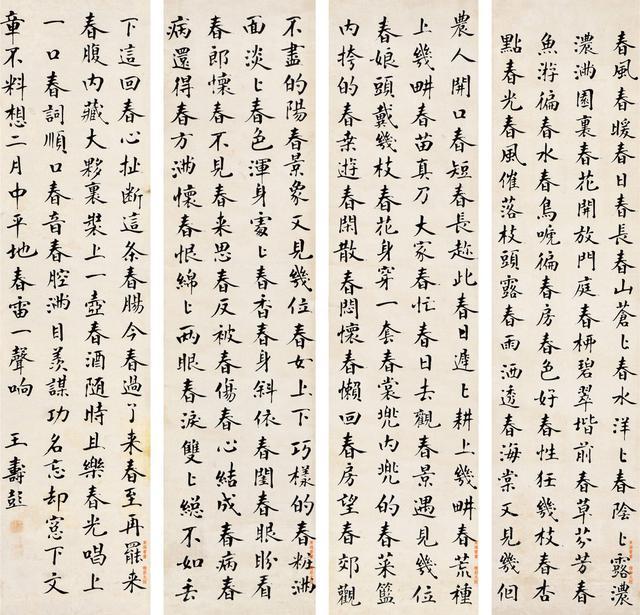 春風春暖春日春長春山蒼〻春水洋〻春陰〻露濃
濃滿園裏春花開放門庭春柳碧翠堦前春草芬芳春
魚游徧春水春鳥唬徧春房春色好春性狂幾枝春杏
點春光春風催落枝頭露春雨洒透春海棠又見幾個
農人開口春短春長趂此春日遲〻耕上幾畊春荒種
上幾畊春苗真乃大家春忙春日去觀春景遇見幾位
春娘頭戴幾枝春花身穿一套春裳兜內兜的春菜籃
內挎的春桒遊春閑散春悶懷春懶回春房望春郊觀
不盡的陽春景象又見幾位春女上下巧樣的春粧滿
面淡〻春色渾身處〻春香春身斜依春閨春眼盼看
春郎懷春不見春来思春反被春傷春心結成春病春
病還得春方滿懷春恨綿〻兩眼春淚雙〻總不如丢
下這回春心扯斷這条春腸今春過了来春至再罷来
春腹內藏大夥裏裝上一壺春酒隨時且樂春光唱上
一口春詞順口春音春腔滿目羨謀功名忘却窓下文
章不料想二月中平地春雷一聲响
王壽彭